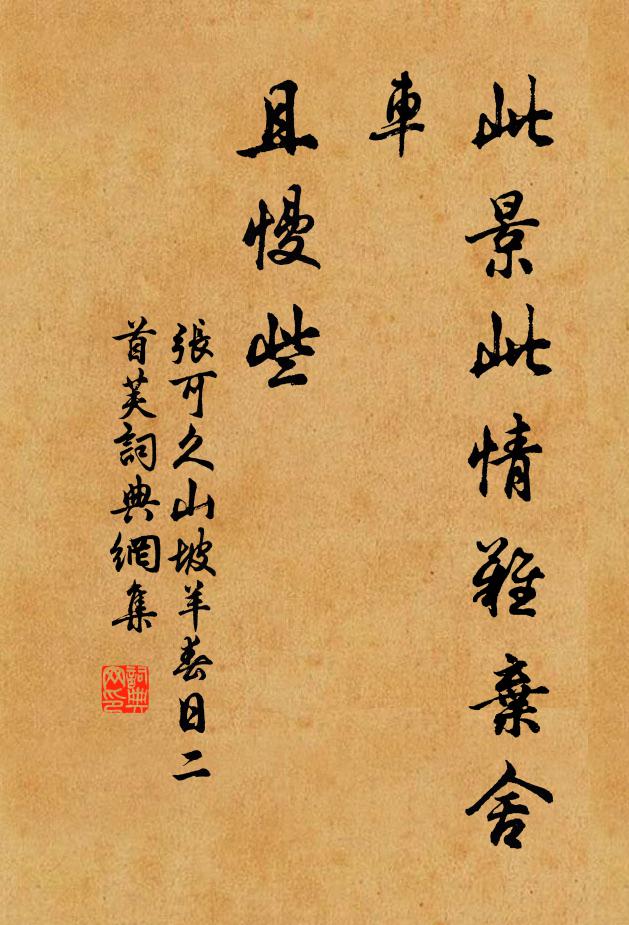 此景此情難棄舍
車
且慢些
張可久山坡羊春日二
首芙詞典網集
詞典
网印